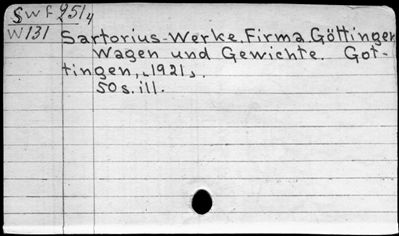 Swf 251/4
W131 Sartorius-Werke. Firma. Göttinger
Wagen und Gewichte. Got-
tingen, [1921].
50 s. ill.